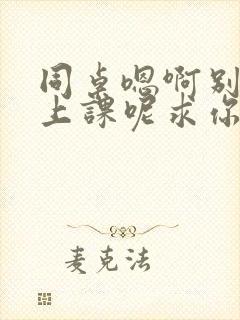 同桌嗯啊别
上課呢求你
麦克法